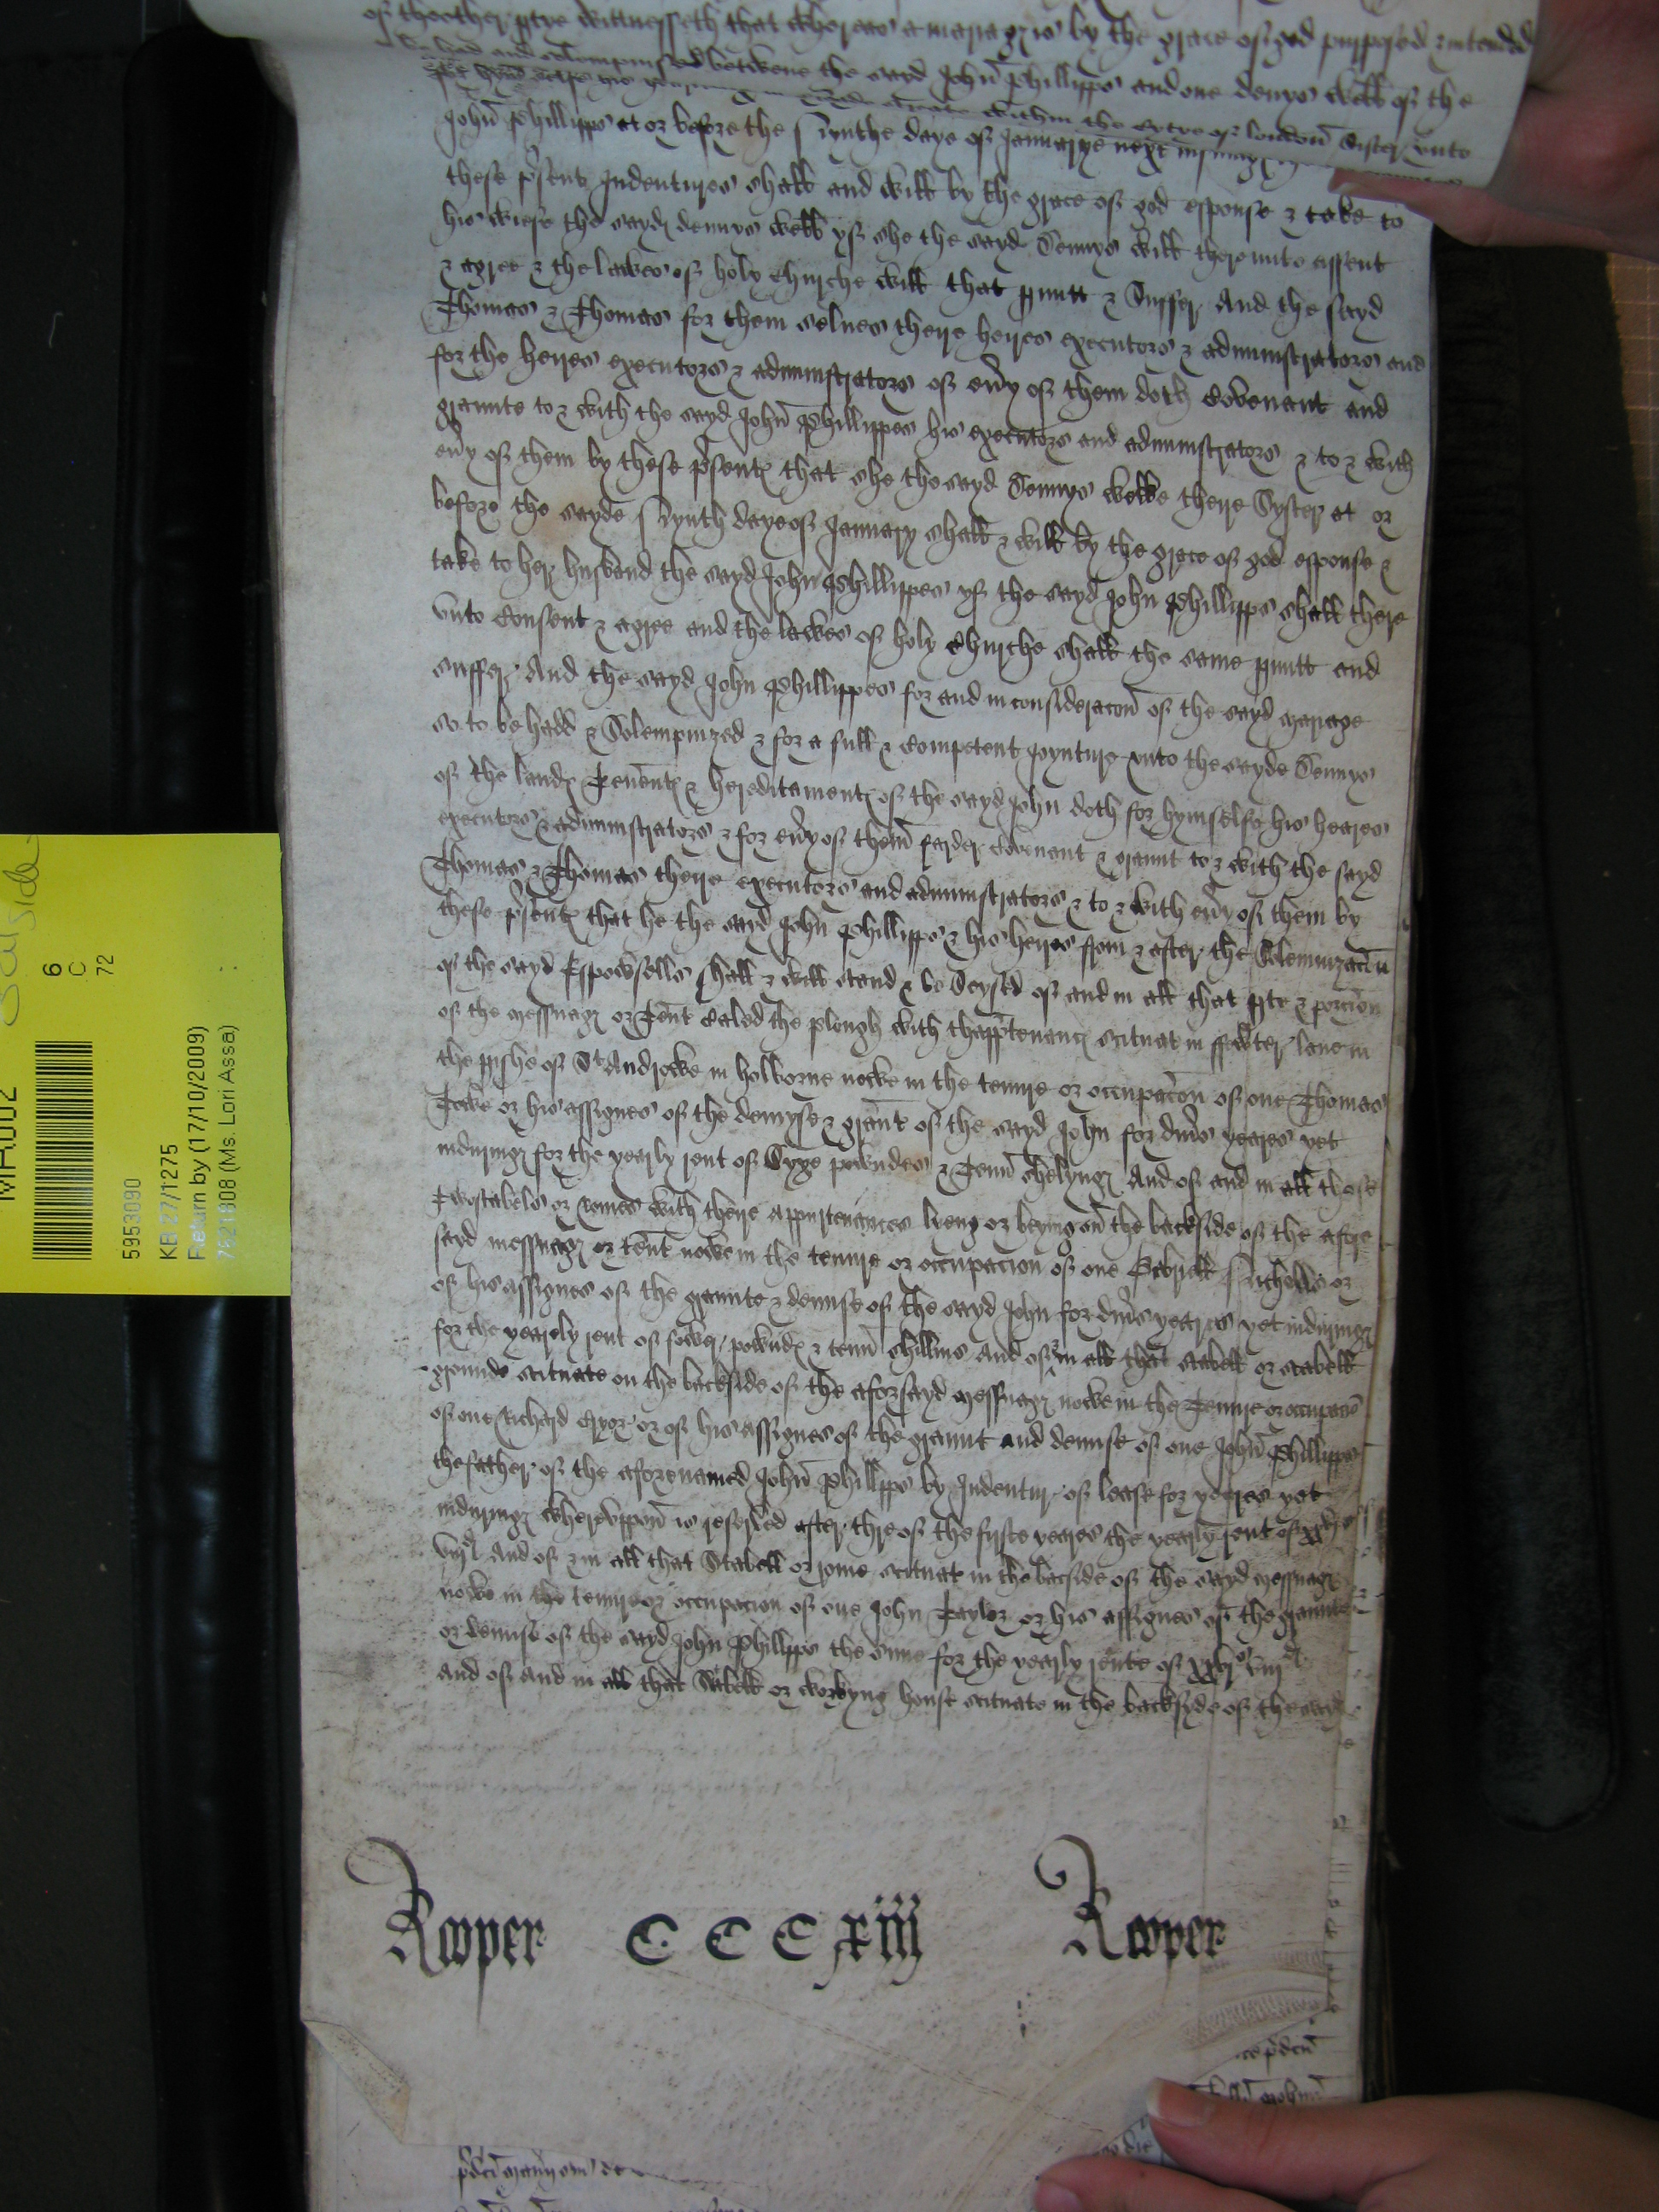 of thoother ptye wittnesseth that whereas a mariage is by the grace of god purposed & intended
betwene the sayd John Phillipps and one denys webb of the
within the cytye of london Sister unto
John Phillipps at or before the nynthe daye of Januarye next
these psent Indentures shall and will by the grace of god esponse & take to
his wiefe the sayd dennys webb yf she the sayd Dennys will thereunto assent
& agree & the lawes of holy Churche will that pmitt & Suffer And the sayd
Thomas & Thomas for them selves theire heires executors & administrators and
for the heires executors & administrators of evy of them doth Covenant and
graunte to & with the sayd John Phillippes his executors and administrators & to & with
evy of them by these psents that she the sayd Dennys webbe theire Syster at or
before the sayde nynth daye of January shall & will by the grace of god esponse &
take to her husband the sayd John Phillippes yf the sayd John Phillipps shall there
unto Consent & agree and the lawes of holy Churche shall the same pmitt and
suffer And the sayd John Phillippes for and in consideracon of the sayd mariage
so to be hadd & Solempnized & for a full & Competent Joynture unto the sayde Dennys
of the lands Tenents & hereditaments of the sayd John doth for hymselfe his heires
executors & administrators & for evy of them farder Covenant & graunt to & with the sayd
Thomas & Thomas theire executors and administrators & to & with evy of them by
these psents that he the sayd John Phillipps & his heires from & after the Solemnizacon
of the sayd Espowsells shall & will stand & be Seysed of and in all that pte & porcion
of the messuage or Tent Called the plough with thapptenances scituat in ffewter lane in
the pishe of St Androwe in holborne nowe in the tenure or occupacon of one Thomas
or his assignes of the demyse & graunt of the sayd John for divs yeares yet
induringe for the yearly rent of Syxe powndes & Tenn shelyngs And of and in all those
Two stabells or romes with theire appurtenances lieng or beyng on the backside of the afore
sayd messuage or tent nowe in the tenure or occupacion of one Gabriell Nicholls or
of his assignes of the graunte & demise of the sayd John for divs yeares yet induringe
for the yearely rent of fower pownds & tenn shillins And of & in all that stabell or stabell
grounde scituate on the backside of the aforsayd messuage nowe in the Tenure or occupacon
of one Richard or of his assignes of the graunt and demise of one John Phillipps
the father of the aforenamed John Phillipps by Indenture of lease for yeares yet
induringe whereuppon is reserved after thre of the firste yeares the yearly rent of xxvjs
viijd And of & in all that Stabell or rome scituate in the bacside of the sayd messuage
nowe in the tenure or occupacion of one John Taylor or his assignes of the graunte
or demise of the sayd John Phillipps the sonne for the yearly rente of xxvjs viijd
and of and in all that Stabell or workyng house scituate in the backsyde of the sayd
Rooper CCCxiij Rooper
5953090
6
C
72
KB 27/1275
Return by (17/10/2009)
(Ms. Lori Assa)